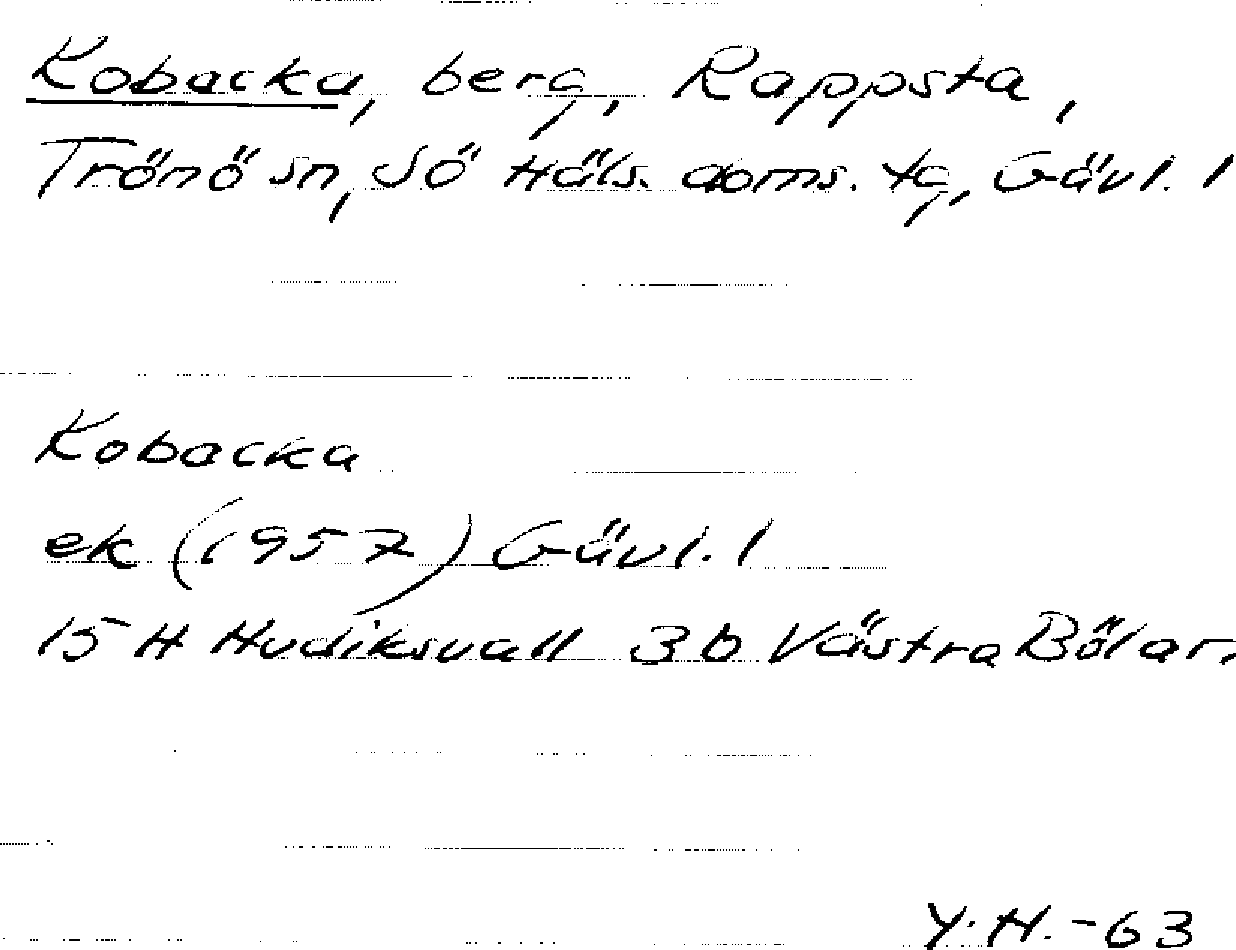 Kobacka, berg, Rappsta,
Trönö sn, Sö Häls. doms. tg, Gävl. l
Kobacka
ek (1957) Gävl. l
15 H Hudiksvall 3b Västra Bölar.
Y.H.-63